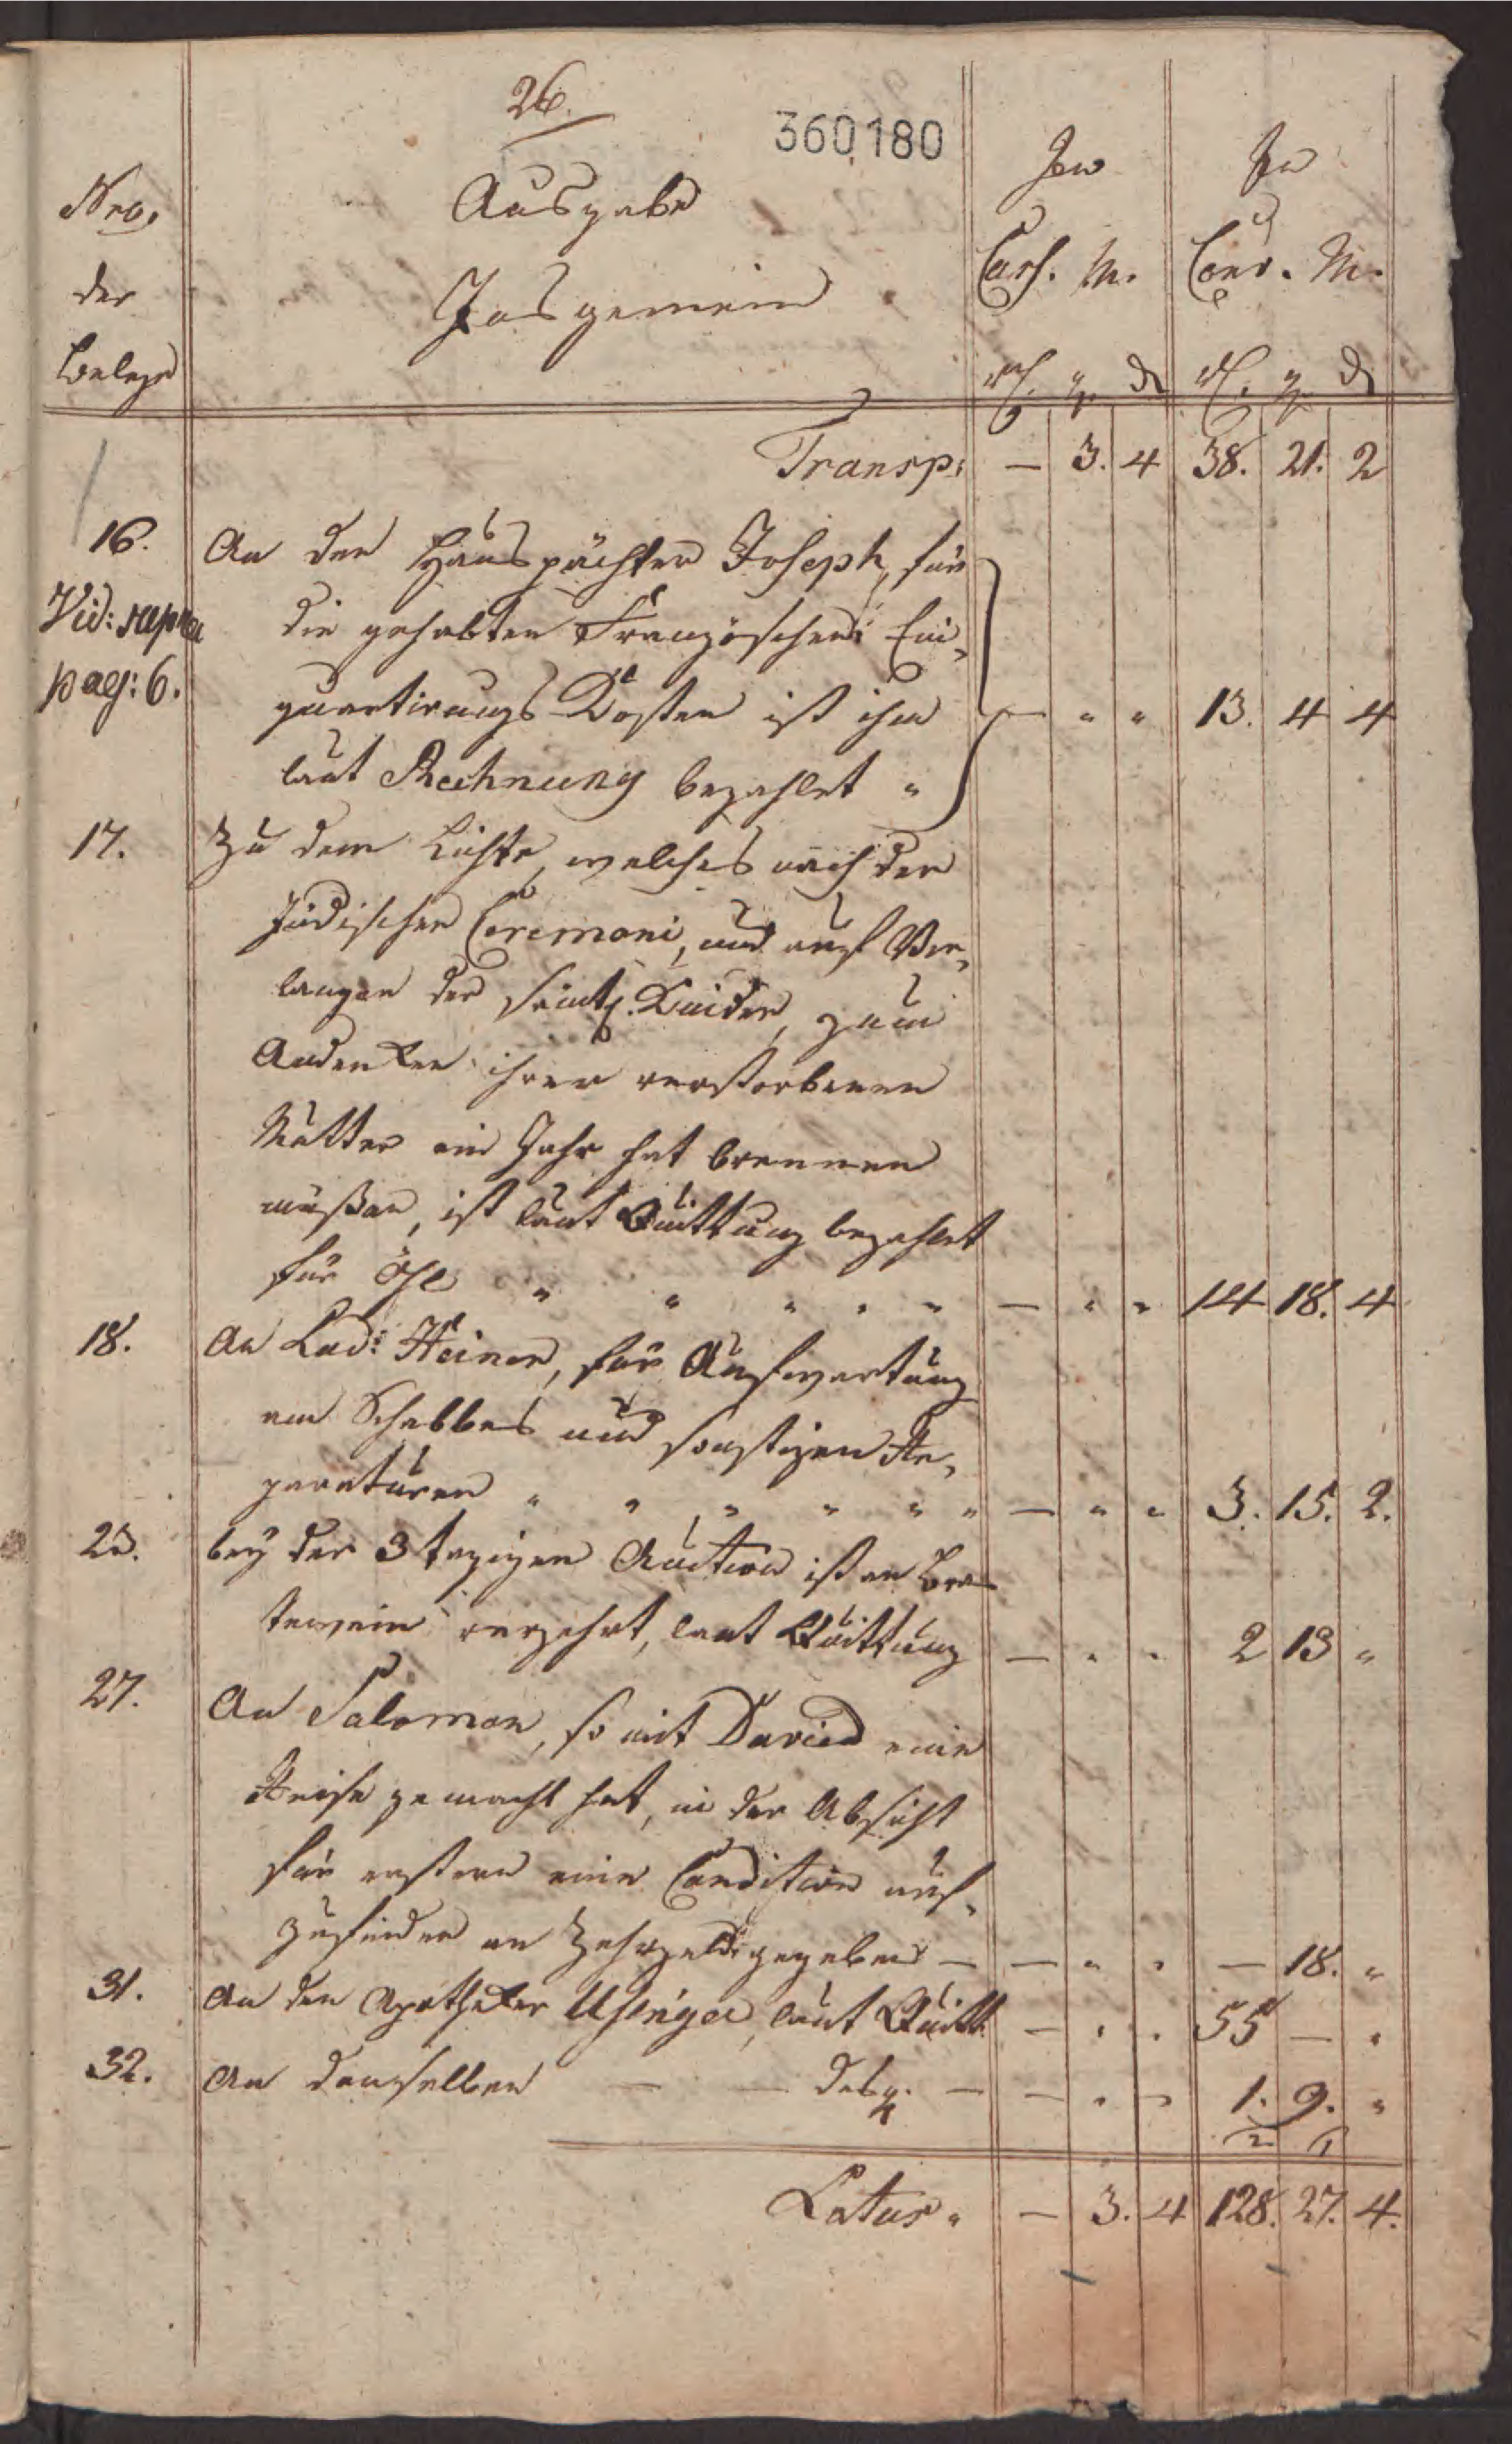 26.
360,180
Nro.
der
Belege
Ausgabe
Insgemein
In
Cass. M.
In
Cour. M.
rℓ. g. ₰ rℓ. g. ₰
Transp: — 3. 4 38. 21. 2
16. An den Hauspächter Joseph, für
Vid: supra die gehabten Französchen Ein-
pag: 6. quartirungs-Kosten ist ihm — " " 13. 4 4
laut Rechnung bezahlet "
17. Zu dem Lichte, welches nach der
Jüdischen Ceremoni, und auf Ver-
langen der sämtl. Kinder, zum
Andenken ihrer verstorbenen
Mutter ein Jahr hat brennen
müßen, ist laut Quittung bezahlt
für Öhl " " " " " — " " 14 18. 4
18. An Lud: Heiner, für Aufwartung
am Schabbes und sonstigen Re-
paraturen " " " " " " — " " 3. 15. 2.
23. bey der 3 tagigen Auction ist an Bran
tewein verzehrt, laut Quittung — " " 2 13 "
27. An Salomon, so mit David eine
Reise gemacht hat, in der Absicht
für erstern eine Condition auf-
zufinden an Zehrgeld gegeben — — " " — 18. "
31. An den Apotheker Usinger, laut Quitt. — " " 55 — "
32. An denselben — — desgl. — — " " 1. 9. "
2 1
Latus " — 3. 4 128. 27. 4.